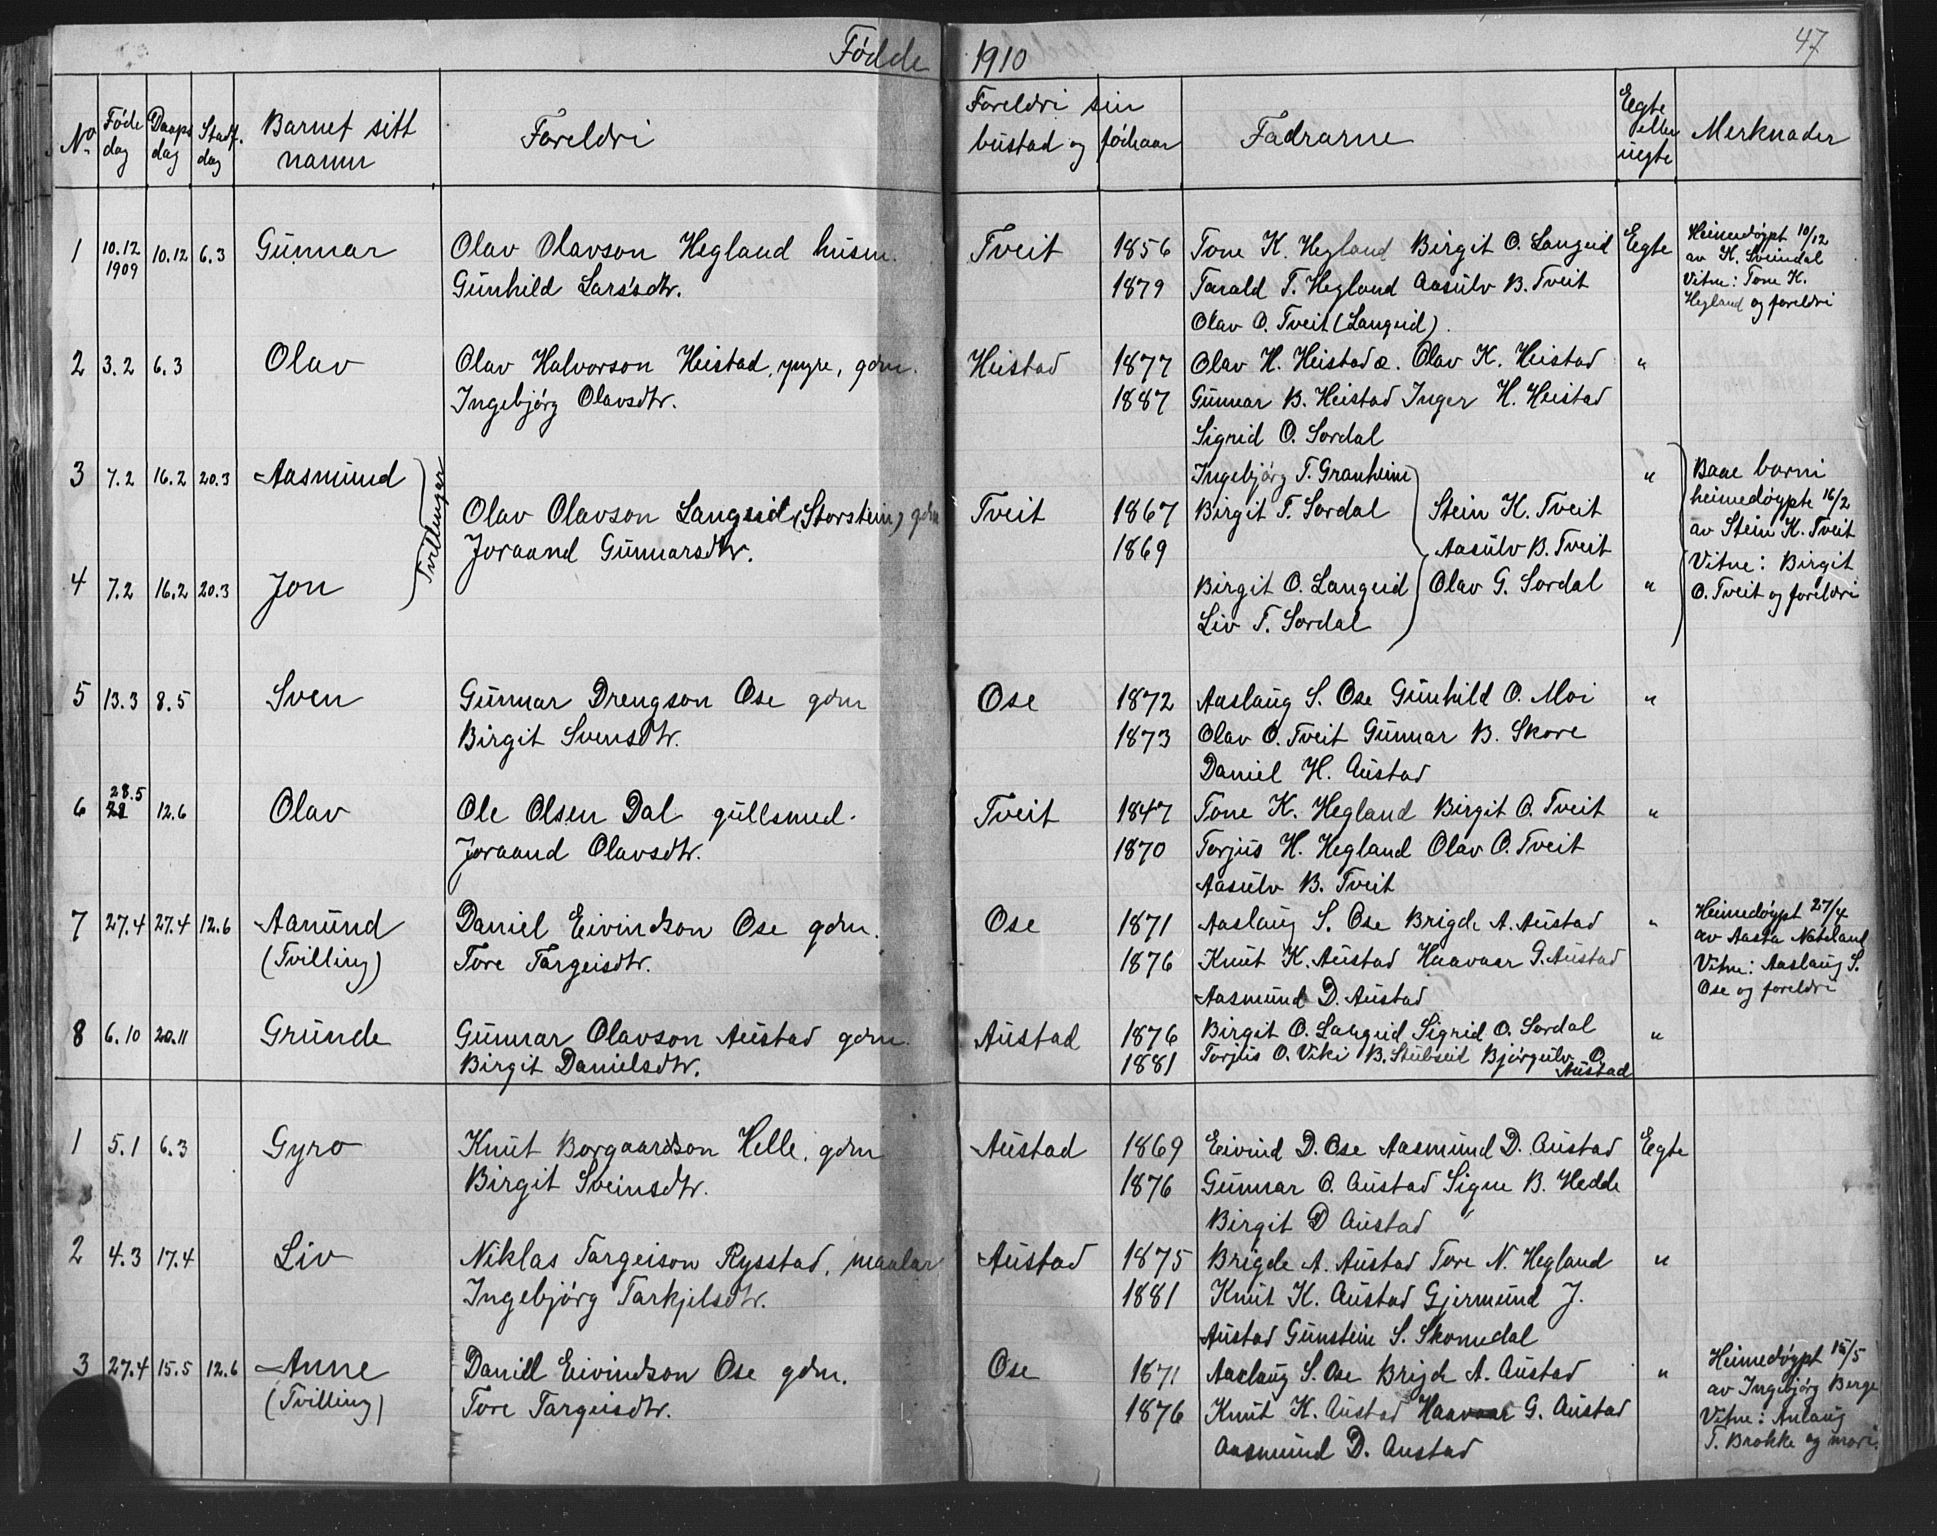 Fødde 1910
47
No Føde dag Daaps dag Stadf. dag Barnet sitt namn Foreldri Foreldri sin bustad og fødeaar Fadrarne Egte eller uegte Merknader
1 10.12 1909 10.12 6.3 Gunnar Olav Olavson Hegland husm. Tveit 1856 Tone K. Hegland Birgit O. Langeid Egte Heimedøypt 10/12
Gunhild Larsdtr. 1879 Tarald T. Hegland Aasulv B. Tveit av K. Sveindal
Olav O. Tveit (Langeid). Vitne: Tone K.
Hegland og foreldri
2 3.2 6.3 Olav Olav Halvorson Heistad, yngre, gdm. Heistad 1877 Olav H. Heistad æ. Olav K. Heistad "
Ingebjørg Olavsdtr. 1887 Gunnar B. Heistad Inger H. Heistad
Sigrid O. Sordal
3 7.2 16.2 20.3 Aasmund Tvillingar Ingebjørg T. Granheim " Baae borni
Olav Olavson Langeid (Storstein) gdm Tveit 1867 Birgit T. Sordal Stein K. Tveit heimedøypte 16/2
Joraand Gunnarsdtr. 1869 Aasulv B. Tveit av Stein K. Tveit
4 7.2 16.2 20.3 Jon Birgit O. Langeid Olav G. Sordal " Vitne: Birgit
Liv T. Sordal O. Tveit og foreldri
5 13.3 8.5 Sven Gunnar Drengson Ose gdm Ose 1872 Aaslaug S. Ose Gunhild O. Moi "
Birgit Svensdtr. 1873 Olav O. Tveit Gunnar B. Skore
Daniel H. Austad
6 28.5 12.6 Olav Ole Olsen Dal gullsmed. Tveit 1847 Tone K. Hegland Birgit O. Tveit "
Joraand Olavsdtr. 1870 Torjus H. Hegland Olav O. Tveit
Aasulv B. Tveit
7 27.4 27.4 12.6 Aanund Daniel Eivindson Ose gdm. Ose 1871 Aaslaug S. Ose Brigde A. Austad " Heimedøypt 27/4
(Tvilling) Tore Targeisdtr. 1876 Knut K. Austad Haavaar G. Austad av Aasta Nateland
Aasmund D. Austad Vitne: Aaslaug S.
Ose og foreldri
8 6.10 20.11 Grunde Gunnar Olavson Austad gdm. Austad 1876 Birgit O. Langeid Sigrid O. Sordal "
Birgit Danielsdtr. 1881 Torjus O. Viki B. Stubseid Bjørgulv O.
Austad
1 5.1 6.3 Gyro Knut Borgaardson Helle, gdm Austad 1869 Eivind D. Ose Aasmund D. Austad Egte
Birgit Sveinsdtr. 1876 Gunnar O. Austad Signe B. Hedde
Birgit D Austad
2 4.3 17.4 Liv Niklas Targeison Rysstad, maalar Austad 1875 Brigde A. Austad Tore N. Hegland "
Ingebjørg Tarkjelsdtr. 1881 Knut K. Austad Gjermund J.
Austad Gunstein S. Skomedal
3 27.4 15.5 12.6 Anne Daniel Eivindson Ose gdm. Ose 1871 Aaslaug S. Ose Brigde A. Austad " Heimedøypt 15/5
(Tvilling) Tore Targeisdtr. 1876 Knut K. Austad Haavaar G. Austad av Ingebjørg Berge
Aasmund D. Austad Vitne: Anlaug
T. Brokke og mori.